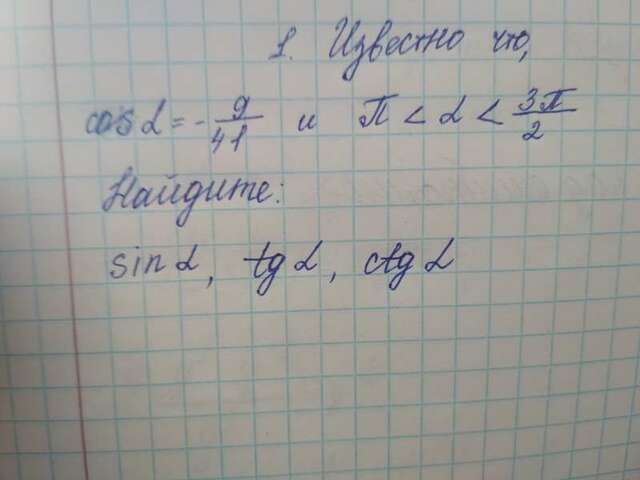 1. Известно что,
cos α = - 9/41 и π < α < 3π/2
Найдите:
sin α, tg α, ctg α